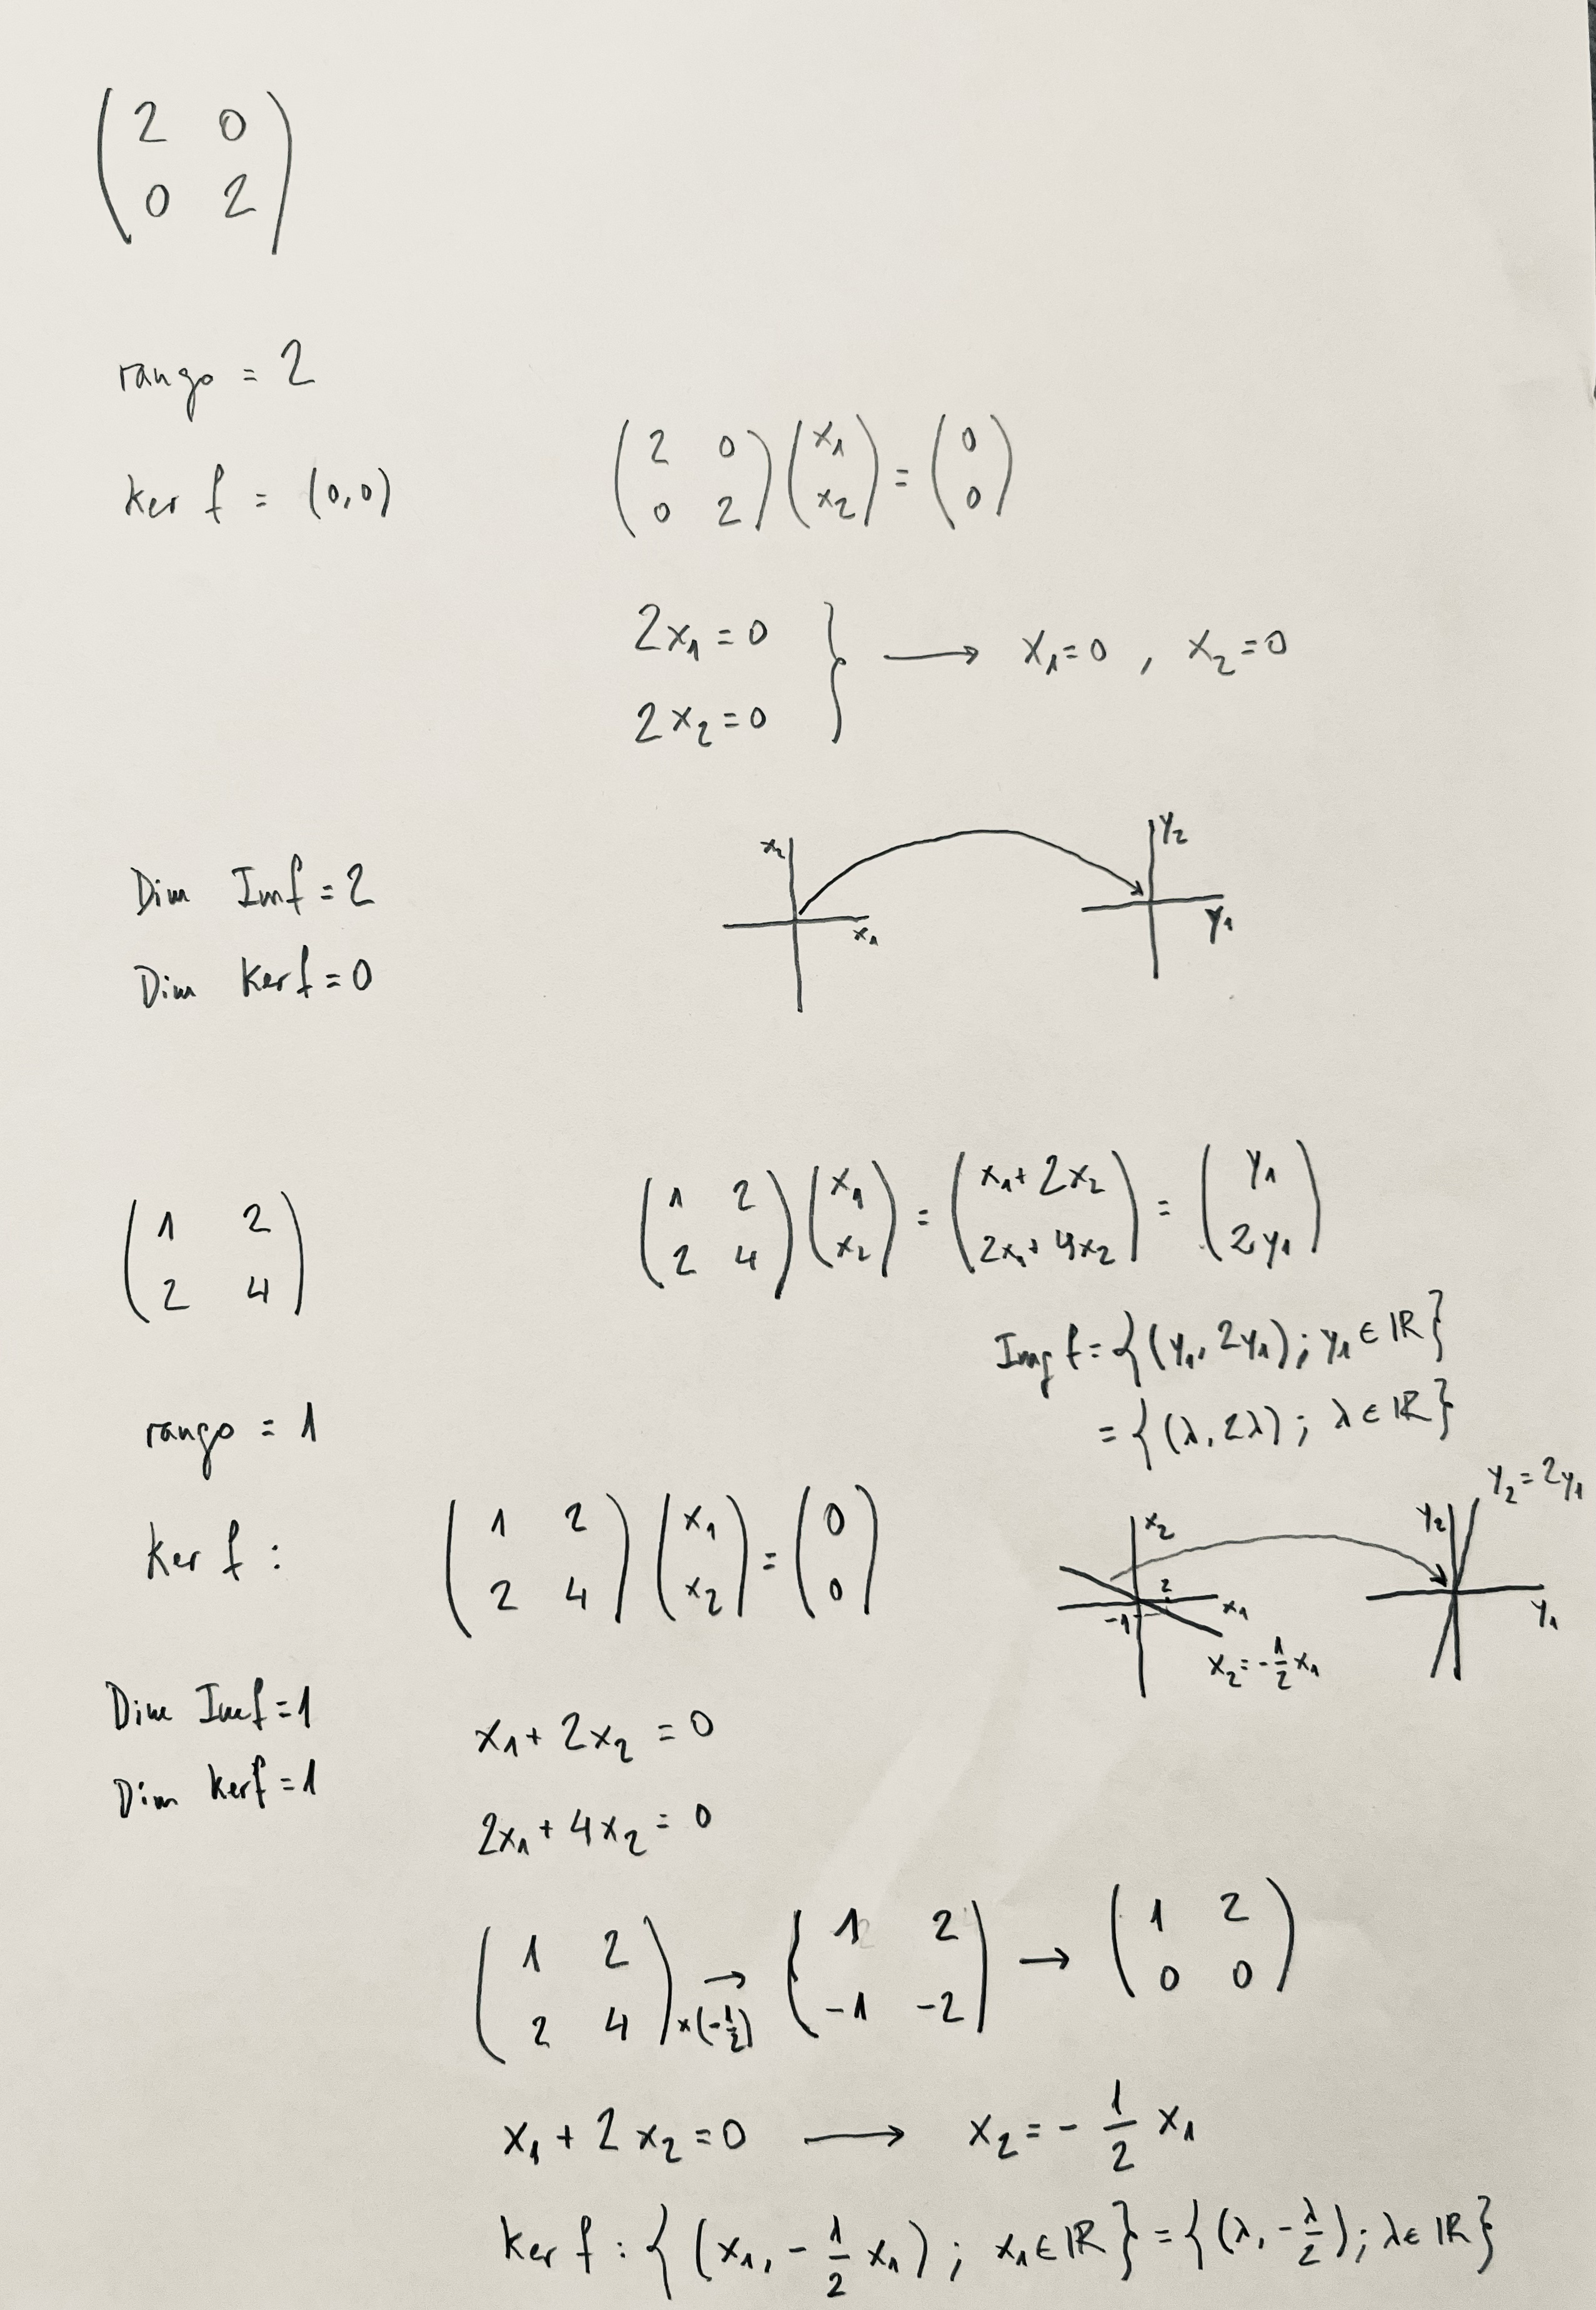 ( 2 0
0 2 )
rango = 2
Ker f = (0,0)
( 2 0
0 2 ) ( x₁
x₂ ) = ( 0
0 )
2x₁ = 0
2x₂ = 0 } ⟶ x₁=0 , x₂=0
Dim Imf = 2
Dim Kerf = 0
x₂
x₁
y₂
y₁
( 1 2
2 4 )
( 1 2
2 4 ) ( x₁
x₂ ) = ( x₁+ 2x₂
2x₁+ 4x₂ ) = ( y₁
2y₁ )
Img f = { (y₁, 2y₁) ; y₁ ∈ ℝ }
= { (λ, 2λ) ; λ ∈ ℝ }
rango = 1
Ker f :
( 1 2
2 4 ) ( x₁
x₂ ) = ( 0
0 )
x₂
2
-1
x₁
x₂ = -1/2 x₁
y₂ = 2y₁
y₂
y₁
Dim Imf = 1
Dim Kerf = 1
x₁ + 2x₂ = 0
2x₁ + 4x₂ = 0
( 1 2
2 4 ) ×(-1/2) → ( 1 2
-1 -2 ) → ( 1 2
0 0 )
x₁ + 2x₂ = 0 ⟶ x₂ = - 1/2 x₁
Ker f : { (x₁, - 1/2 x₁) ; x₁ ∈ ℝ } = { (λ, -λ/2) ; λ ∈ ℝ }